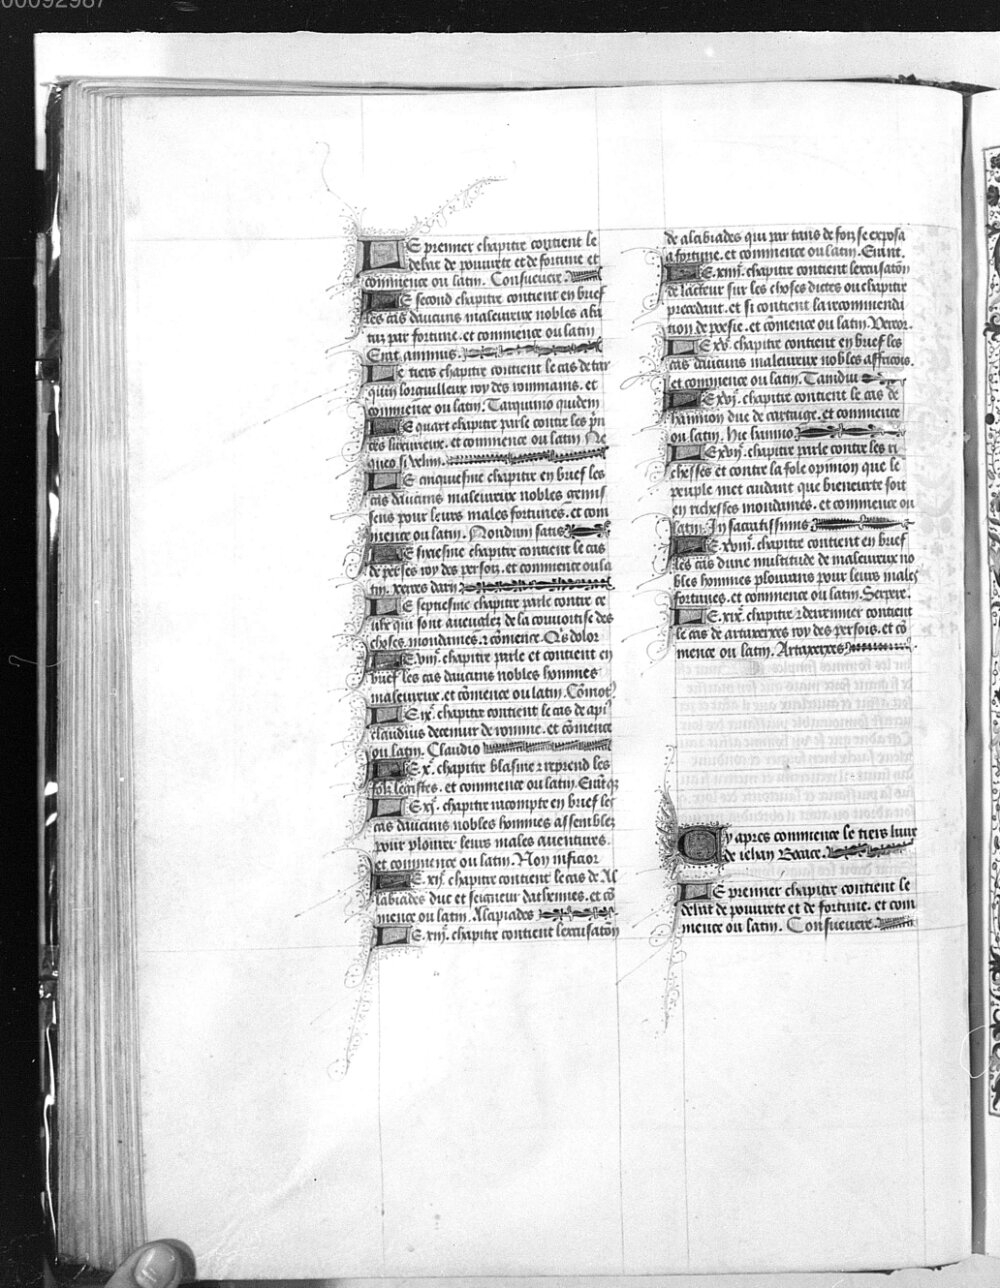 00092987
LE premier chapitre contient le
debat de pouurete et de fortune et
commence ou latin. Consueuere.
LE second chapitre contient en brief
les cas daucuns maleureux nobles aba
tuz par fortune. et commence ou latin
Erat animus.
LE tiers chapitre contient le cas de tar
quin lorguilleux roy des rommains. et
commence ou latin. Tarquino quidem
LE quart chapitre parle contre les pn
ces luxurieux. et commence ou latin Ne
queo si velim.
LE cinquiesme chapitre en brief les
cas daucuns maleureux nobles gemis
sens pour leurs males fortunes. et com
mence ou latin. Nondum satis
LE sixiesme chapitre contient le cas
de xerses roy des persois. et commence ou la
tin. xerces darij
LE septiesme chapitre parle contre ce
ulx qui sont aueuglez de la couuoitise des
choses mondaines. ⁊ cōmence. Qͥs dolor
LE.viijͤ. chapitre parle et contient en
brief les cas daucuns nobles hommes
maleureux. et cōmence ou latin. Cōmot
LE ixͤ. chapitre contient le cas de api
claudius decemur de romme. et cōmence
ou latin. Claudio
LE.xͤ. chapitre blasme ⁊ reprend les
folz legistes. et commence ou latin. Eratqꝫ
LE xjͤ. chapitre racompte en brief les
cas daucuns nobles hommes assemblez
pour plourer leurs males auentures.
et commence ou latin. Non inficior
LE.xijͤ. chapitre contient le cas de Al
labiades duc et seigneur dathennes. et cō
mence ou latin. Alapiades
LE.xiijͤ. chapitre contient lexcusatōn
de alabiades qui par tans de foiz se exposa
a fortune. et commence ou latin. Erant.
LE.xiiijͤ. chapitre contient lexcusatōn
de lacteur sur les choses dictes ou chapitre
precedant. et si contient la recommenda
tion de poesie. et cōmence ou latin. Vereor.
LE xvͤ. chapitre contient en brief les
cas daucuns maleureux nobles affricois.
et commence ou latin. Tamdiu
LE xvjͤ. chapitre contient le cas de
hannon duc de cartaige. et commence
ou latin. Hic hanno
LE xvijͤ. chapitre parle contre les ri
chesses et contre la fole opinion que le
peuple met cuidant que bieneurte soit
en richesses mondaines. et commence ou
latin. In sacratissimis
LE.xviijͤ. chapitre contient en brief
les cas dune multitude de maleureux no
bles hommes plourans pour leurs males
fortunes. et commence ou latin. Serpere.
LE.xixͤ. chapitre ⁊ derrennier contient
le cas de artaxerxes roy des persois. et cō
mence ou latin. Artaxerxes
Cy apres commence le tiers liure
de iehan Bocace.
LE premier chapitre contient le
debat de pouurete et de fortune. et com
mence ou latin. Consueuere.